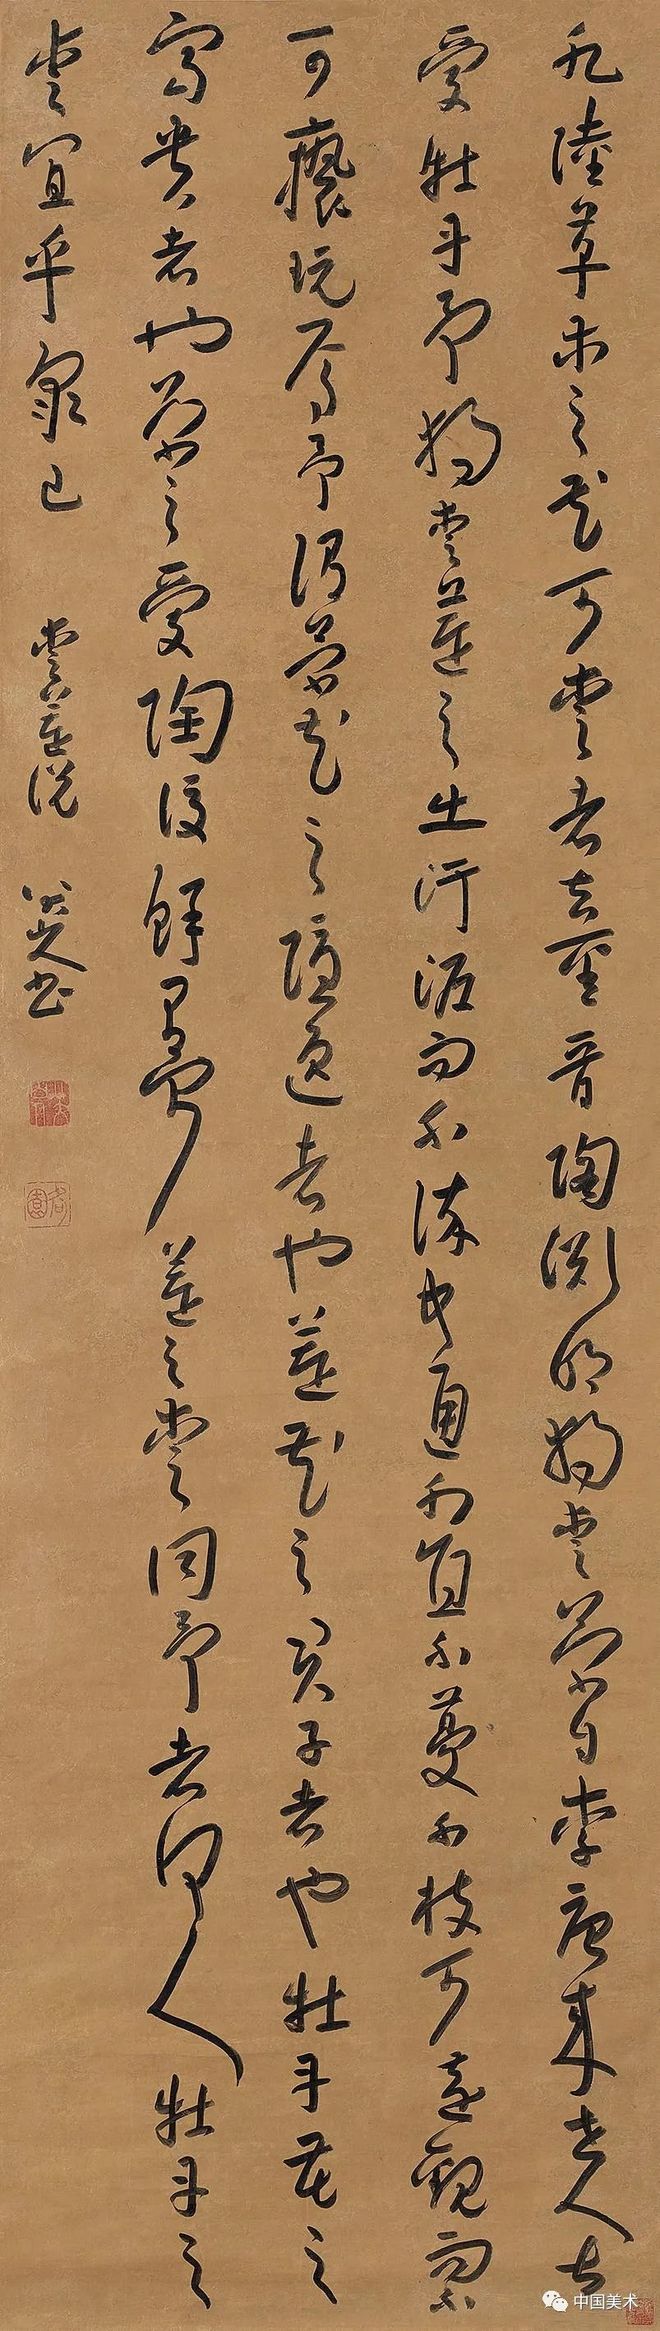 凡陸草木之花可愛者甚蕃晉陶淵明獨愛菊自李唐來世人甚
愛牡丹予獨愛蓮之出汙泥而不染中通外直不蔓不枝可遠觀而不
可褻玩焉予謂菊花之隱逸者也蓮花之君子者也牡丹花之
富貴者也菊之愛陶後鮮有聞蓮之愛同予者何人牡丹之
愛宜乎眾已 愛蓮說 八大山人書
中国美术